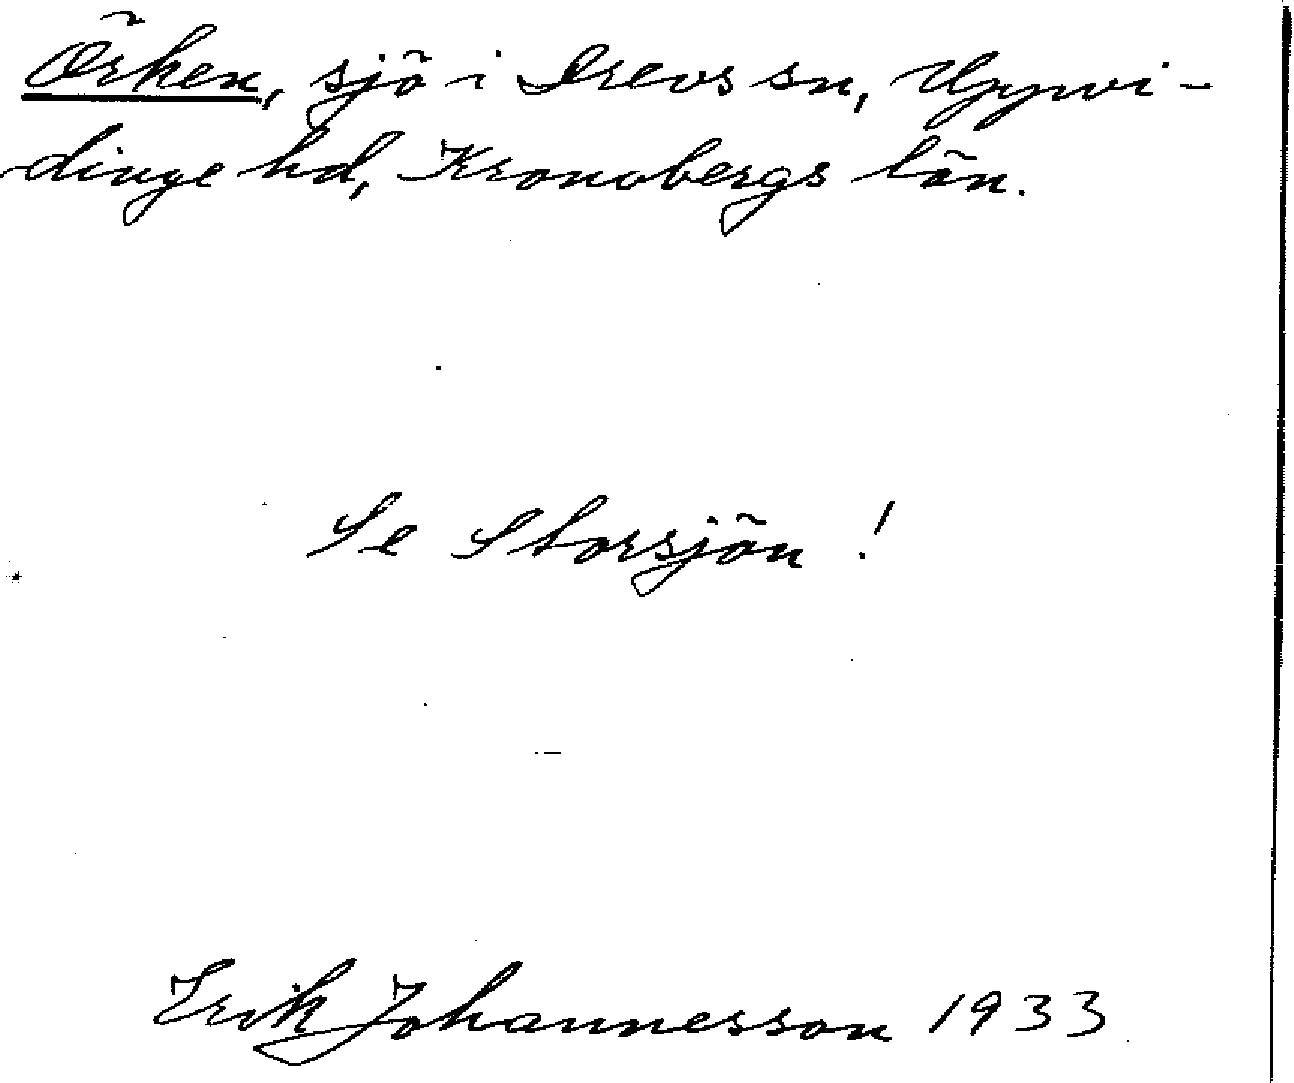 Örken, sjö i Drevs sn, Uppvi-
dinge hd, Kronobergs län.
Se Storsjön!
Erik Johannesson 1933